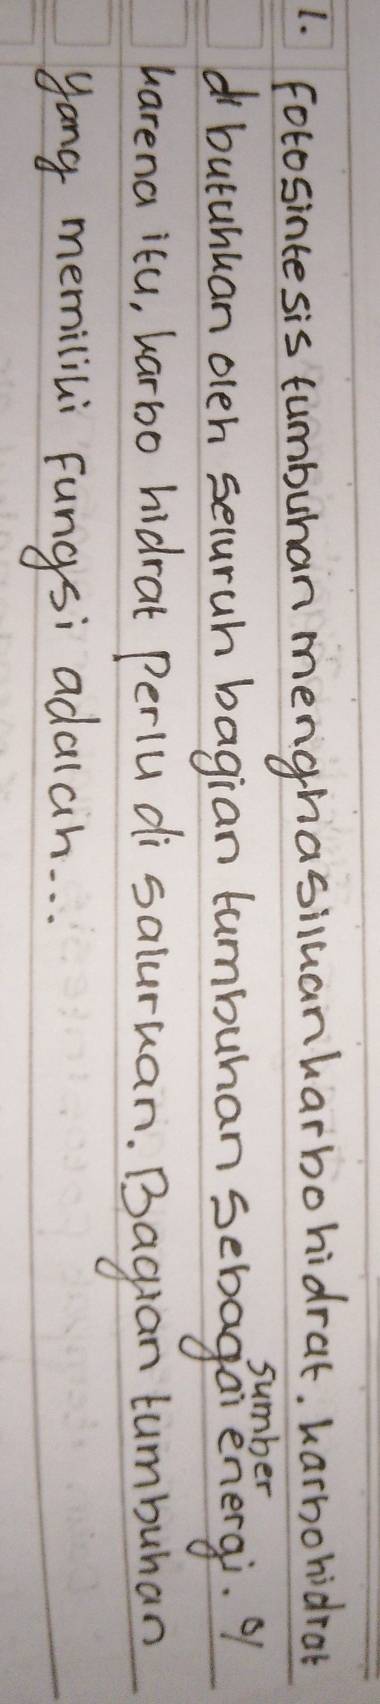 1. Fotosintesis tumbuhan menghasilkan karbohidrat. karbohidrat
di butuhkan oleh seluruh bagian tumbuhan sebagai sumber energi. o/
karena itu, karbo hidrat Perlu di salurkan. Bagian tumbuhan
yang memiliki fungsi adalah...